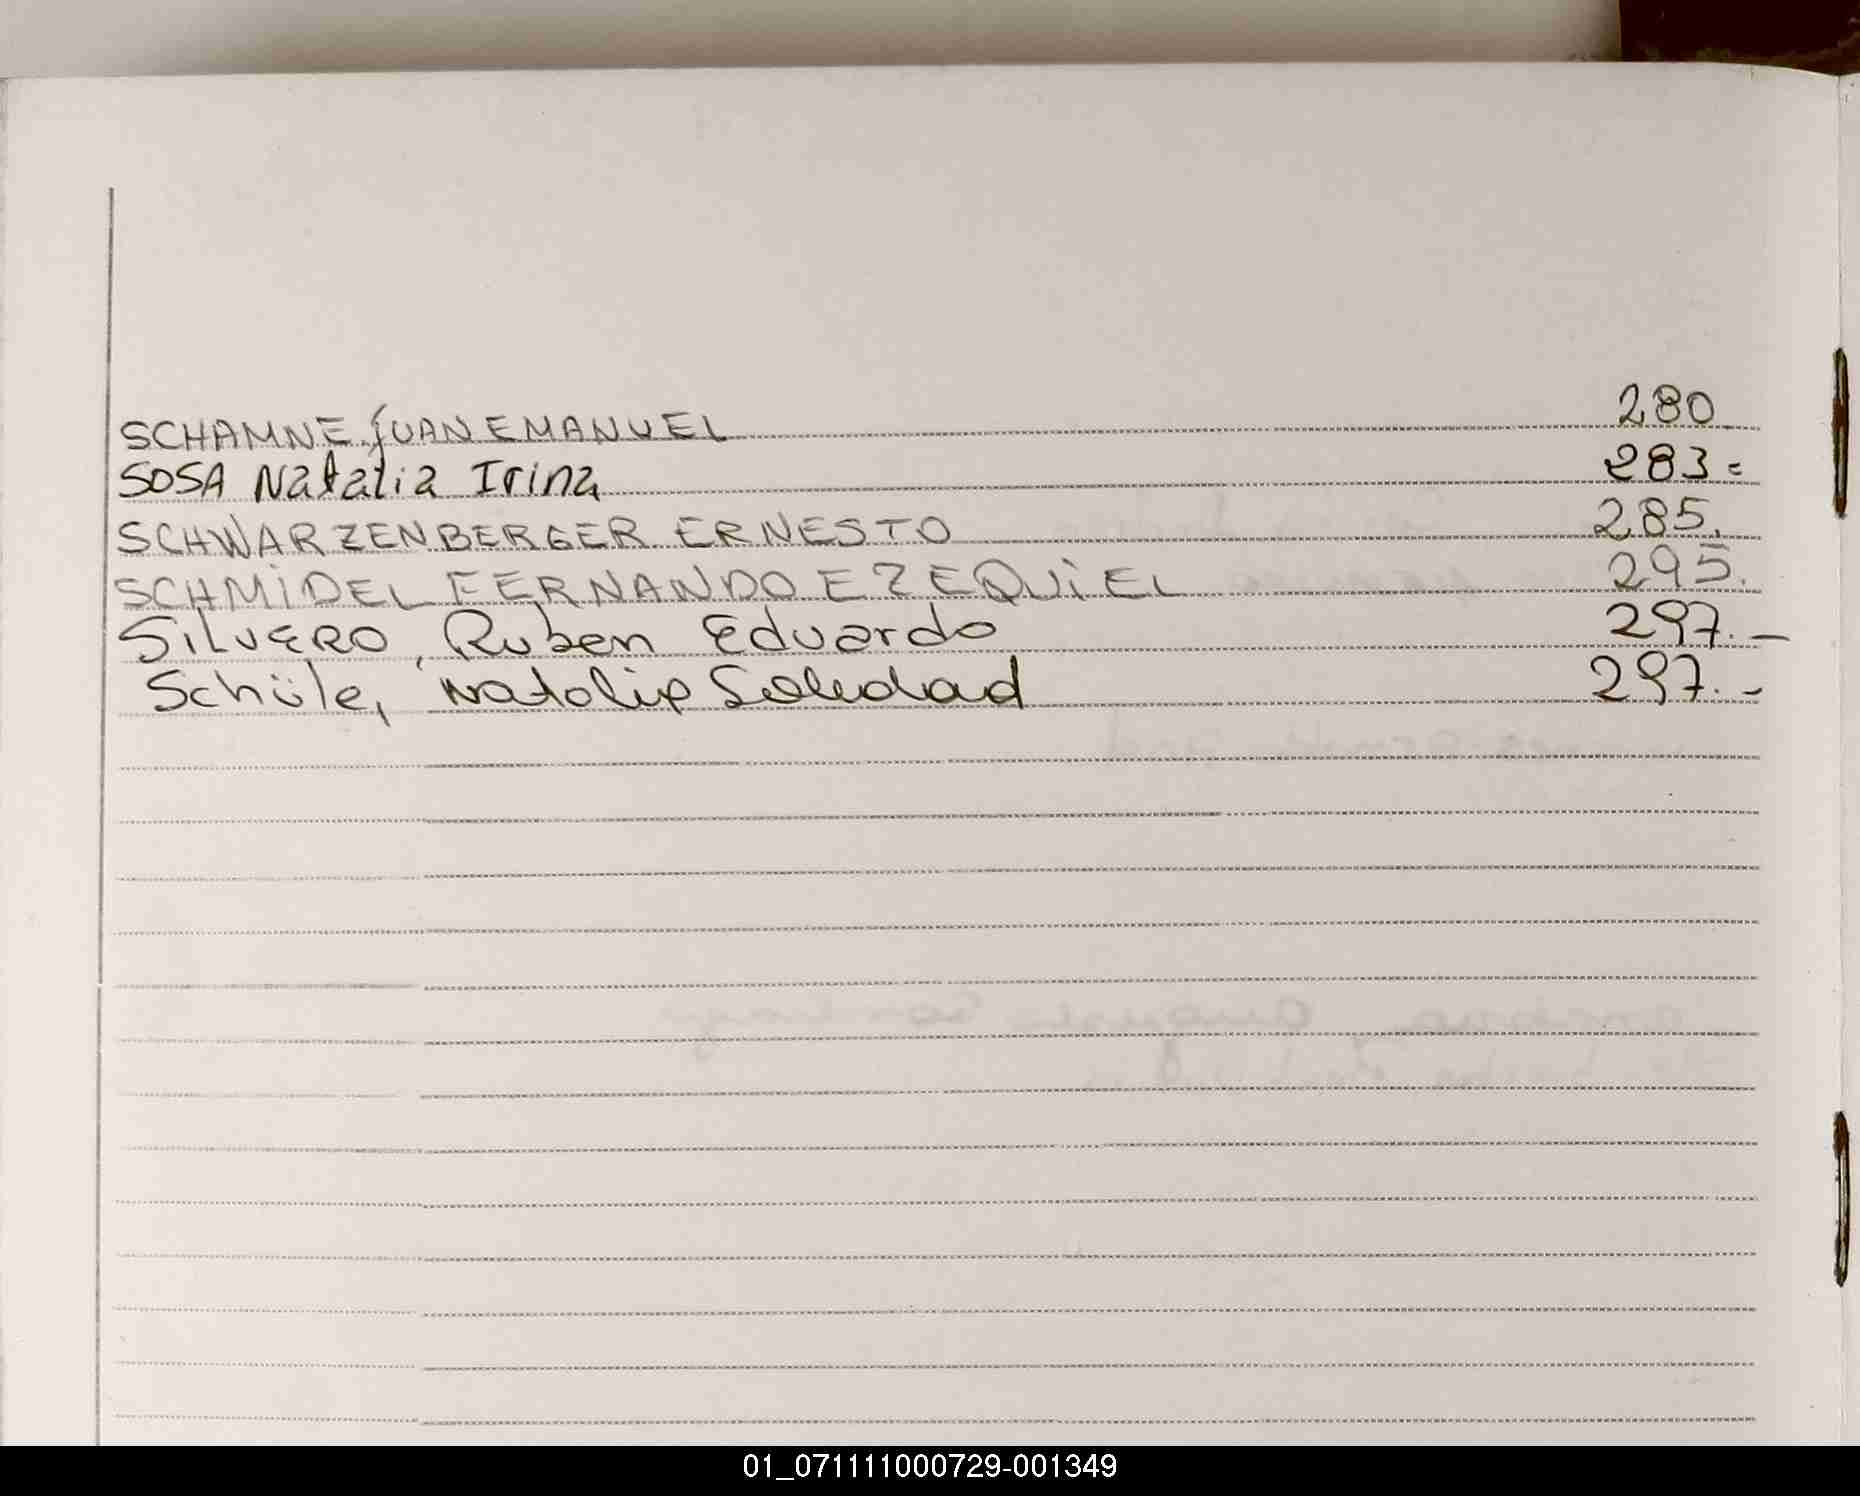 SCHAMNE JUAN EMANUEL 280
SOSA Natalia Irina 283=
SCHWARZENBERGER ERNESTO 285.
SCHMIDEL FERNANDO EZEQUIEL 295.
SILVERO, Ruben Eduardo 297.-
Schüle, Natalia Soledad 297.-
01_071111000729-001349